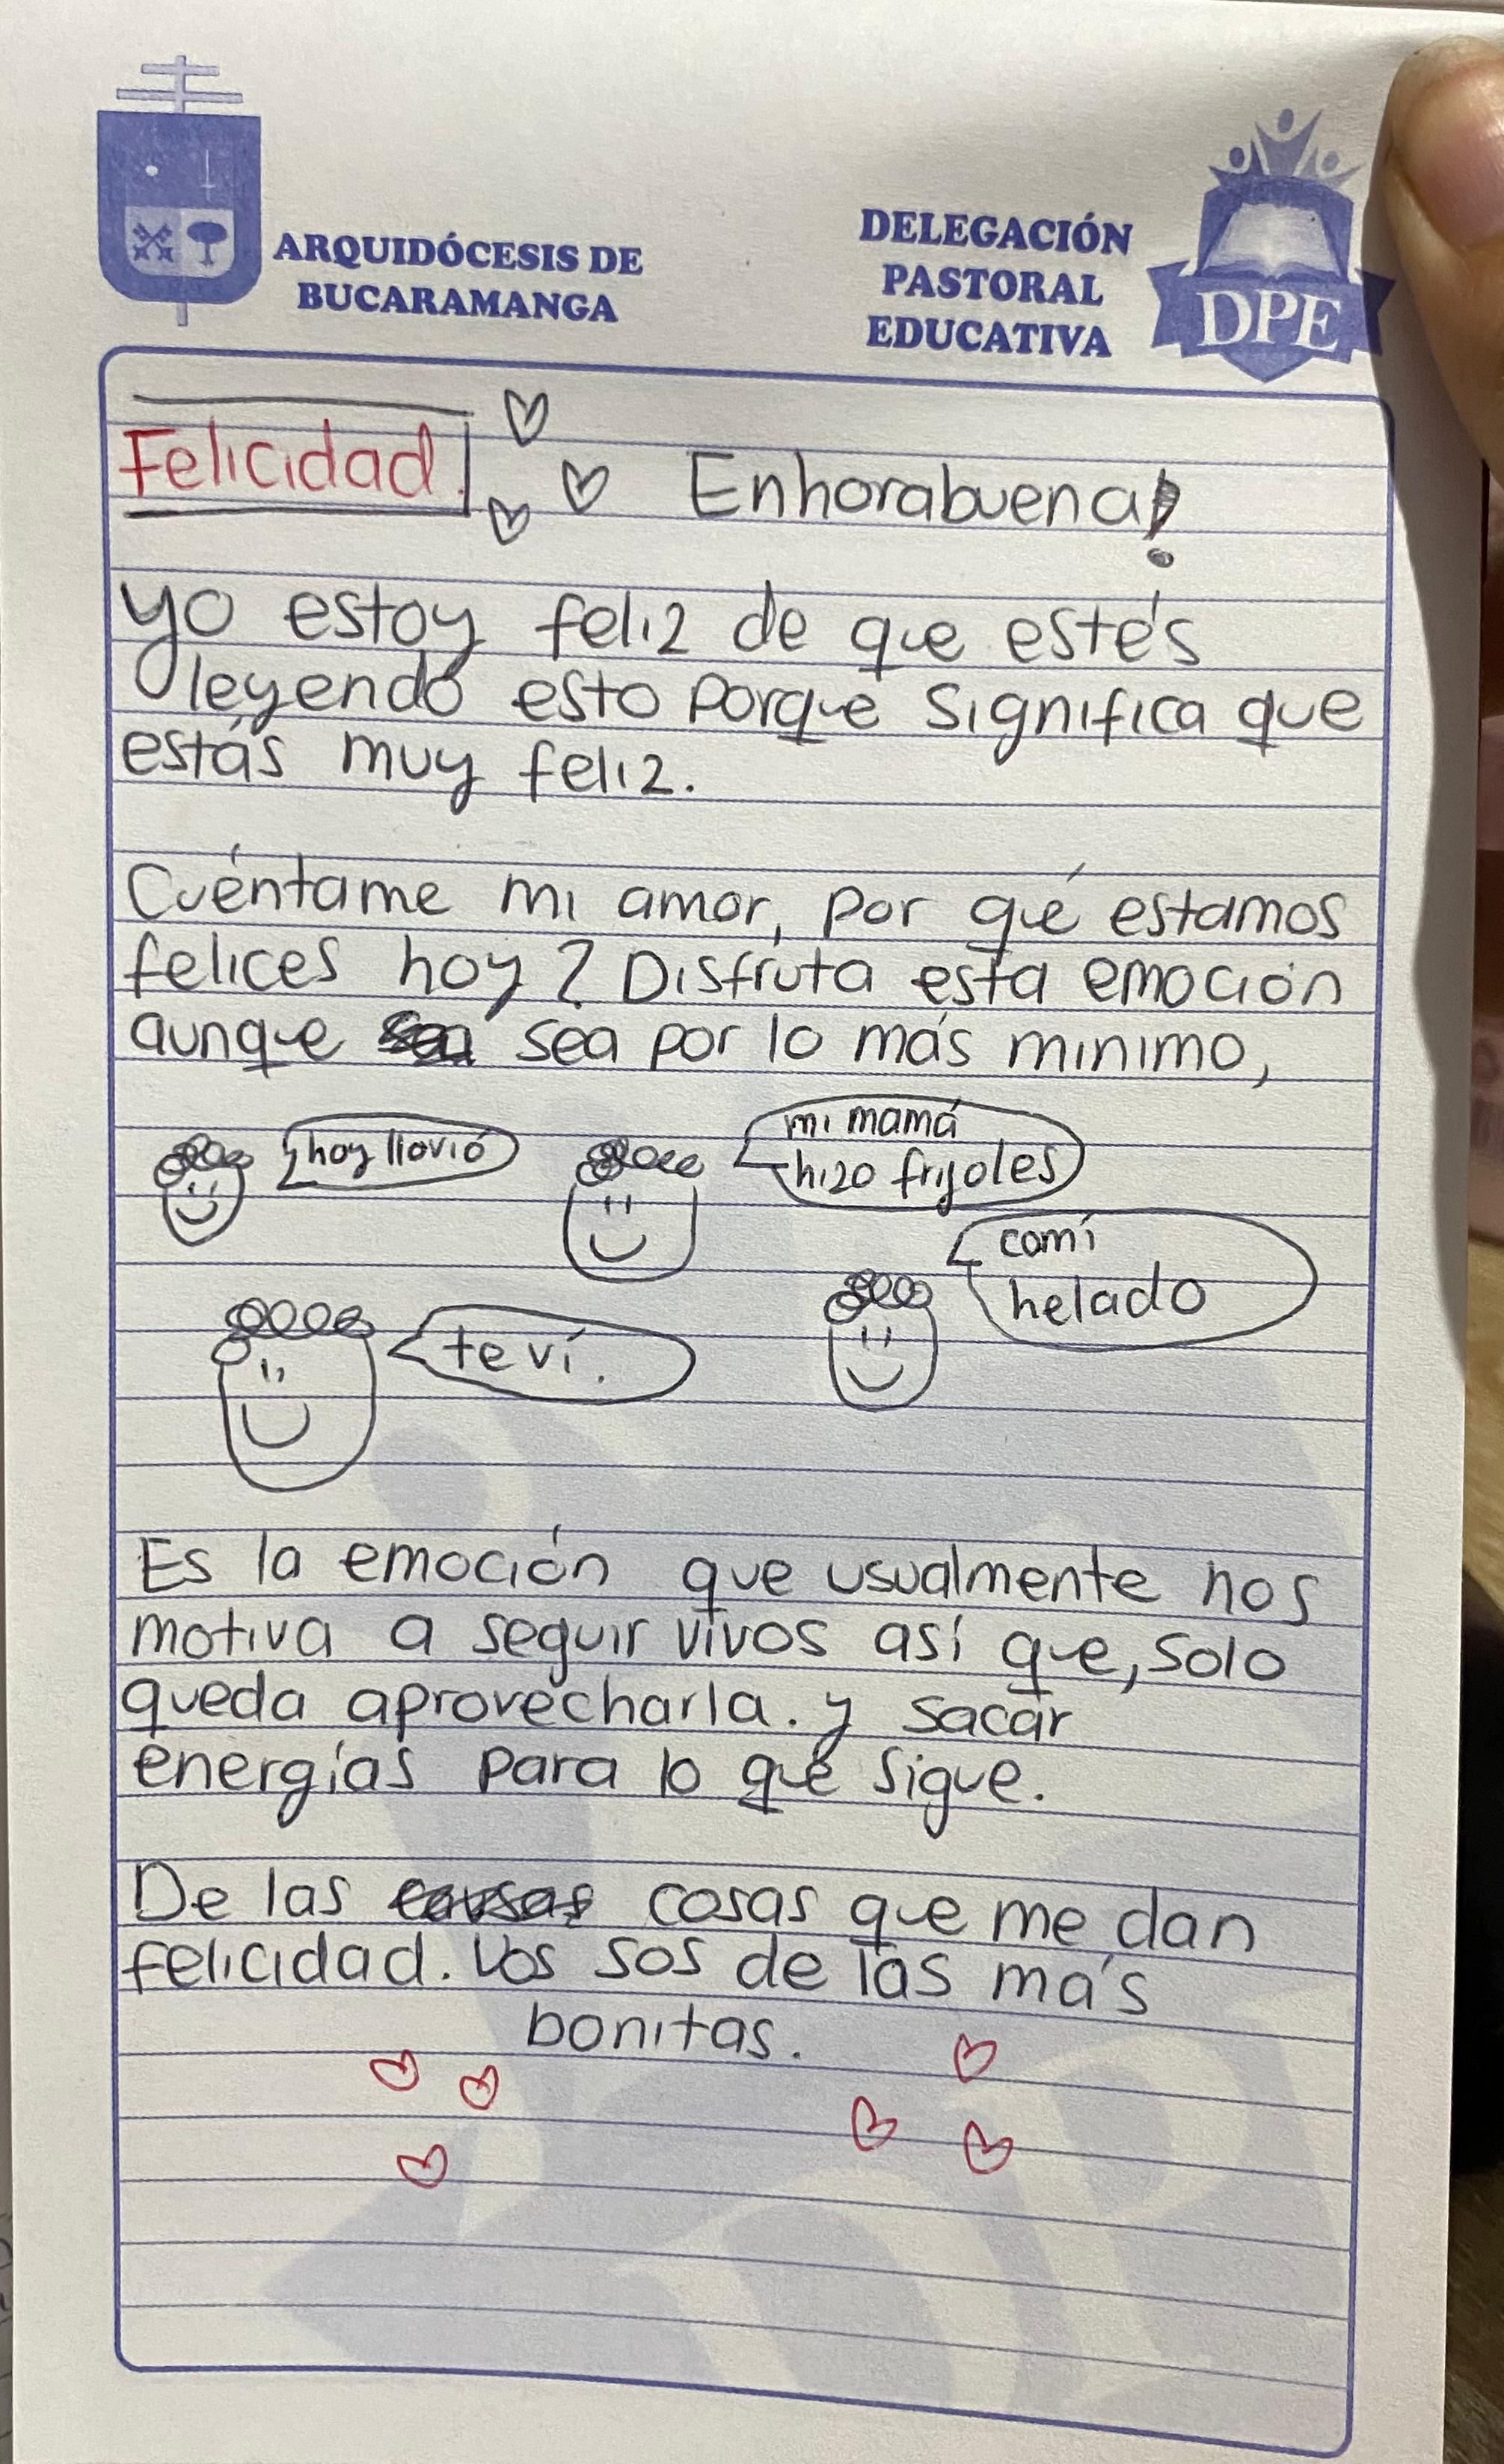 ARQUIDÓCESIS DE
BUCARAMANGA
DELEGACIÓN
PASTORAL
EDUCATIVA
DPE
Felicidad.
Enhorabuena!
yo estoy feliz de que estés
leyendo esto porque significa que
estás muy feliz.
Cuéntame mi amor, por qué estamos
felices hoy? Disfruta esta emoción
aunque sea por lo más minimo,
hoy llovió
mi mamá
hizo frijoles
comí
helado
te ví.
Es la emoción que usualmente nos
motiva a seguir vivos así que, solo
queda aprovecharla. y sacar
energías para lo que sigue.
De las cosas que me dan
felicidad. Vos sos de las más
bonitas.